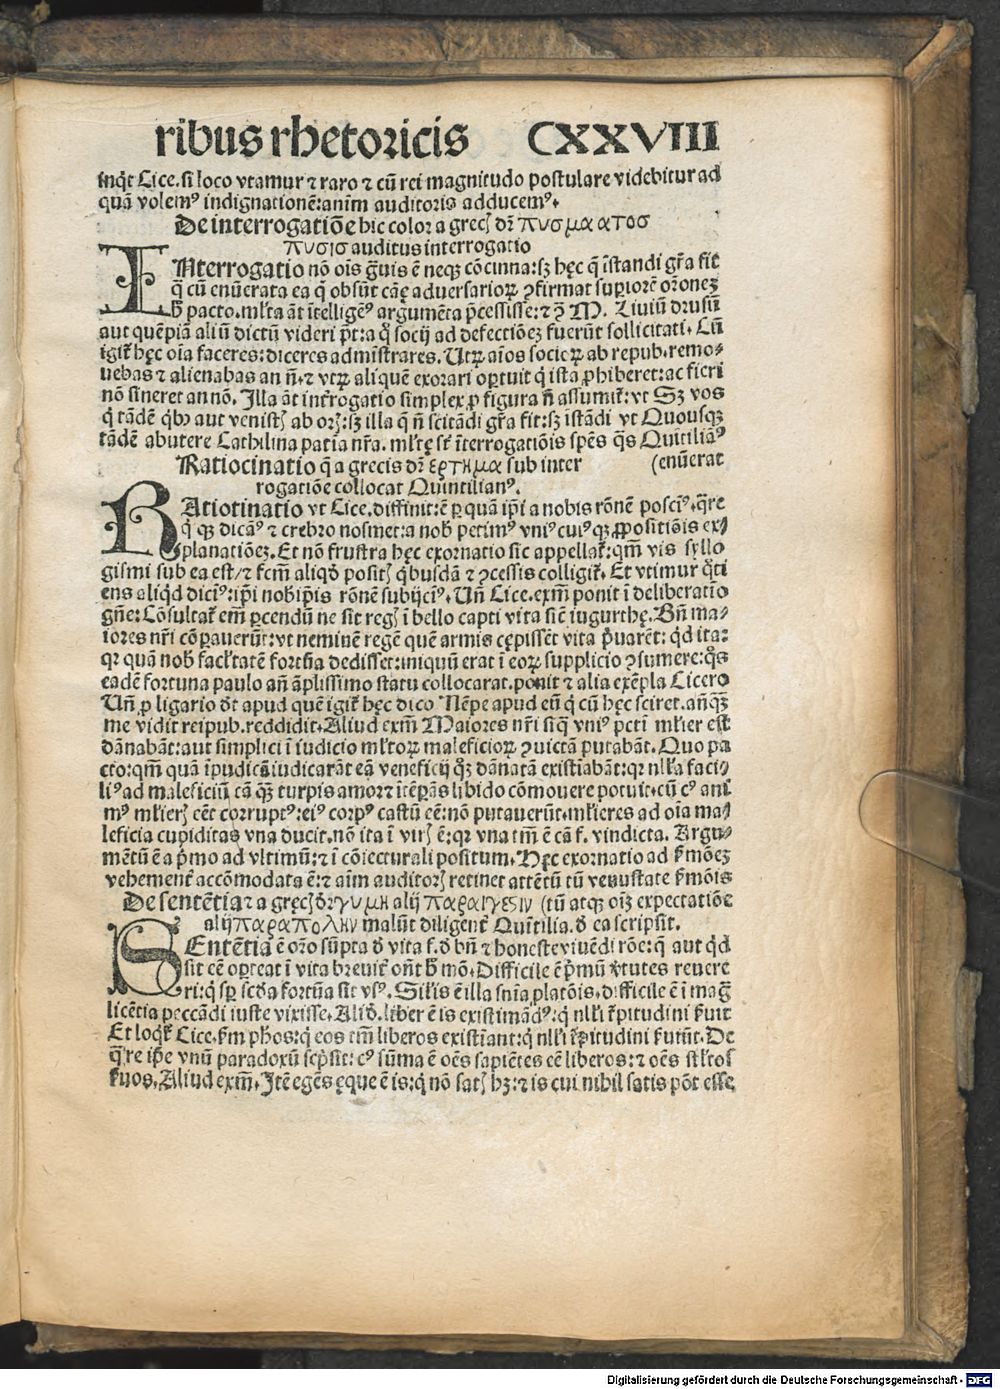 ribus rhetoricis CXXVIII
inqͥt Cice. si loco vtamur ⁊ raro ⁊ cū rei magnitudo postulare videbitur ad
quā volemꝰ indignationē: animū auditoris adducemꝰ.
De interrogatiōe hic color a grecꝭ dr̄ πυσμα ατοσ
πυσισ auditus interrogatio
INterrogatio nō oīs g̃uis ē neqꝫ cōcinna: sꝫ hęc q̄ īstandi gr̃a fit
q̄ cū enūerata ea q̄ obsūt cāę aduersarioꝝ ꝯfirmat supiorē orōneꝫ
h̄ pacto. ml̃ta āt ītelligeꝰ argumēta p̄cessisse: ⁊ M. Liuiū drusū
aut quēpiā aliū dictū videri pt̄: a qͦ socij ad defectiōeꝫ fuerūt sollicitati. Cū
igit̃ hęc oīa faceres: diceres admīstrares. Utꝝ aīos socioꝝ ab repub. remo⸗
uebas ⁊ alienabas an n̄. ⁊ vtꝝ aliquē exorari oꝑtuit qͥ ista ꝓhiberet: ac fieri
nō sineret an nō. Illa āt inr̄rogatio simplex ꝓ figura n̄ assumit̃: vt Sꝫ vos
qͥ tādē qͥbꝰ aut venistꝭ ab orꝭ: sꝫ illa q̄ n̄ scitādi gr̃a fit: sꝫ īstādi vt Quousqꝫ
tādē abutere Cathilina patīa nr̃a. ml̃tę st̃ īterrogatiōis sp̄es qͣs Quītiliāꝰ
Ratiocinatio q̄ a grecis dr̄ ερτημα sub inter (enūerat
rogatiōe collocat Quintilianꝰ.
RAtiotinatio vt Cice. diffinit: ē ꝑ quā ip̄i a nobis rōnē poscimꝰ. q̄re
q̄ qꝫ dicāꝰ ⁊ crebro nosmet: a nob̄ petimꝰ vniꝰcuiꝰqꝫ ꝓpositiōis ex⸗
planatiōeꝫ. Et nō frustra hęc exornatio sic appellat̃: qm̄ vis syllo
gismi sub ea est / ⁊ fcm̄ aliqd̄ positꝭ qͥbusdā ⁊ ꝯcessis colligit̃. Et vtimur qͦti
ens aliqͥd diciꝰ: ip̄i nob̄ip̄is rōnē subijciꝰ. Un̄ Cice. exm̄ ponit ī deliberatiōe
gn̄e: Cōsultat̃ em̄ ꝑcendū ne sit regꝭ ī bello capti vita siē iugurthę. Bn̄ ma⸗
iores nr̄i cōꝑauerūt: vt neminē regē quē armis cępissēt vita p̄uarēt: qͥd ita:
qꝛ quā nob̄ facl̃tatē fortūa dedisset: iniquū erat ī eoꝝ supplicio ꝯsumere: qͦs
eadē fortuna paulo an̄ āplissimo statu collocarat. ponit ⁊ alia exēpla Cicero
Un̄ ꝓ ligario d̄t apud quē igit̃ hęc dico Nēpe apud eū qͥ cū hęc sciret. an̄qꝫ
me vidit reipub. reddidit. Aliud exm̄ Maiores nr̄i siq̄ vniꝰ pctī ml̃ier est
dānabāt: aut simplici ī iudicio ml̃toꝝ maleficioꝝ ꝯuictā putabāt. Quo pa
cto: qm̄ quā īpudicā iudicarāt eā veneficij qͦqꝫ dānatā existīabāt: qꝛ nl̃la faci⸗
liꝰ ad maleficiū cā qꝫ turpis amor ⁊ ītēꝑās libido cōmouere potuit. cū cꝰ ani
mꝰ ml̃ierꝭ cēt corruptꝰ: eiꝰ corpꝰ castū eē: nō putauerūt. ml̃ieres ad oīa ma⸗
leficia cupiditas vna ducit. nō ita ī virꝭ ē: qꝛ vna tm̄ ē cā f. vindicta. Argu⸗
mētū ē a p̄mo ad vltimū: ⁊ ī cōiecturali positum. Hęc exornatio ad s̄mōeꝫ
vehementer̃ accōmodata ē: ⁊ aīm auditorꝭ retinet attētū tū venustate s̄mōis
De sentētia ⁊ a gręcꝭ dr̄ γυμη alij παραιγεσιν (tū atqꝫ oīꝫ expectatiōe
alij παραπολην malūt diligent̃ Quītilia. d̄ ea scripsit.
SEntētia ē orō sūpta d̄ vita f. d̄ bn̄ ⁊ honeste viuēdi rōe: q̄ aut qd̄
sit eē oꝑteat ī vita breuit̃ on̄t h̄ mō. Difficile ē p̄mū v̄tutes reuere
ri: qͥ sꝑ scd̄a fortūa sit vsꝰ. Sil̃is ē illa snīa platōis. difficile ē ī mag̃
licētia peccādi iuste vixisse. Aliud. liber ē is existimādꝰ: qͥ nl̃li t̃pitudini s̄uit
Et loqͥt̃ Cice. s̄m phos: qͥ eos tm̄ liberos existīant: qͥ nl̃li t̃pitudini s̄uiūt. De
q̄ re ip̄e vnū paradoxū scp̄sit: cꝰ sūma ē oēs sapiētes eē liberos: ⁊ oēs stl̃tos
s̄uos. Aliud exm̄. Itē egēs ęque ē is: qͥ nō satꝭ hꝫ: ⁊ is cui nihil satis pōt esse
Digitalisierung gefördert durch die Deutsche Forschungsgemeinschaft - DFG